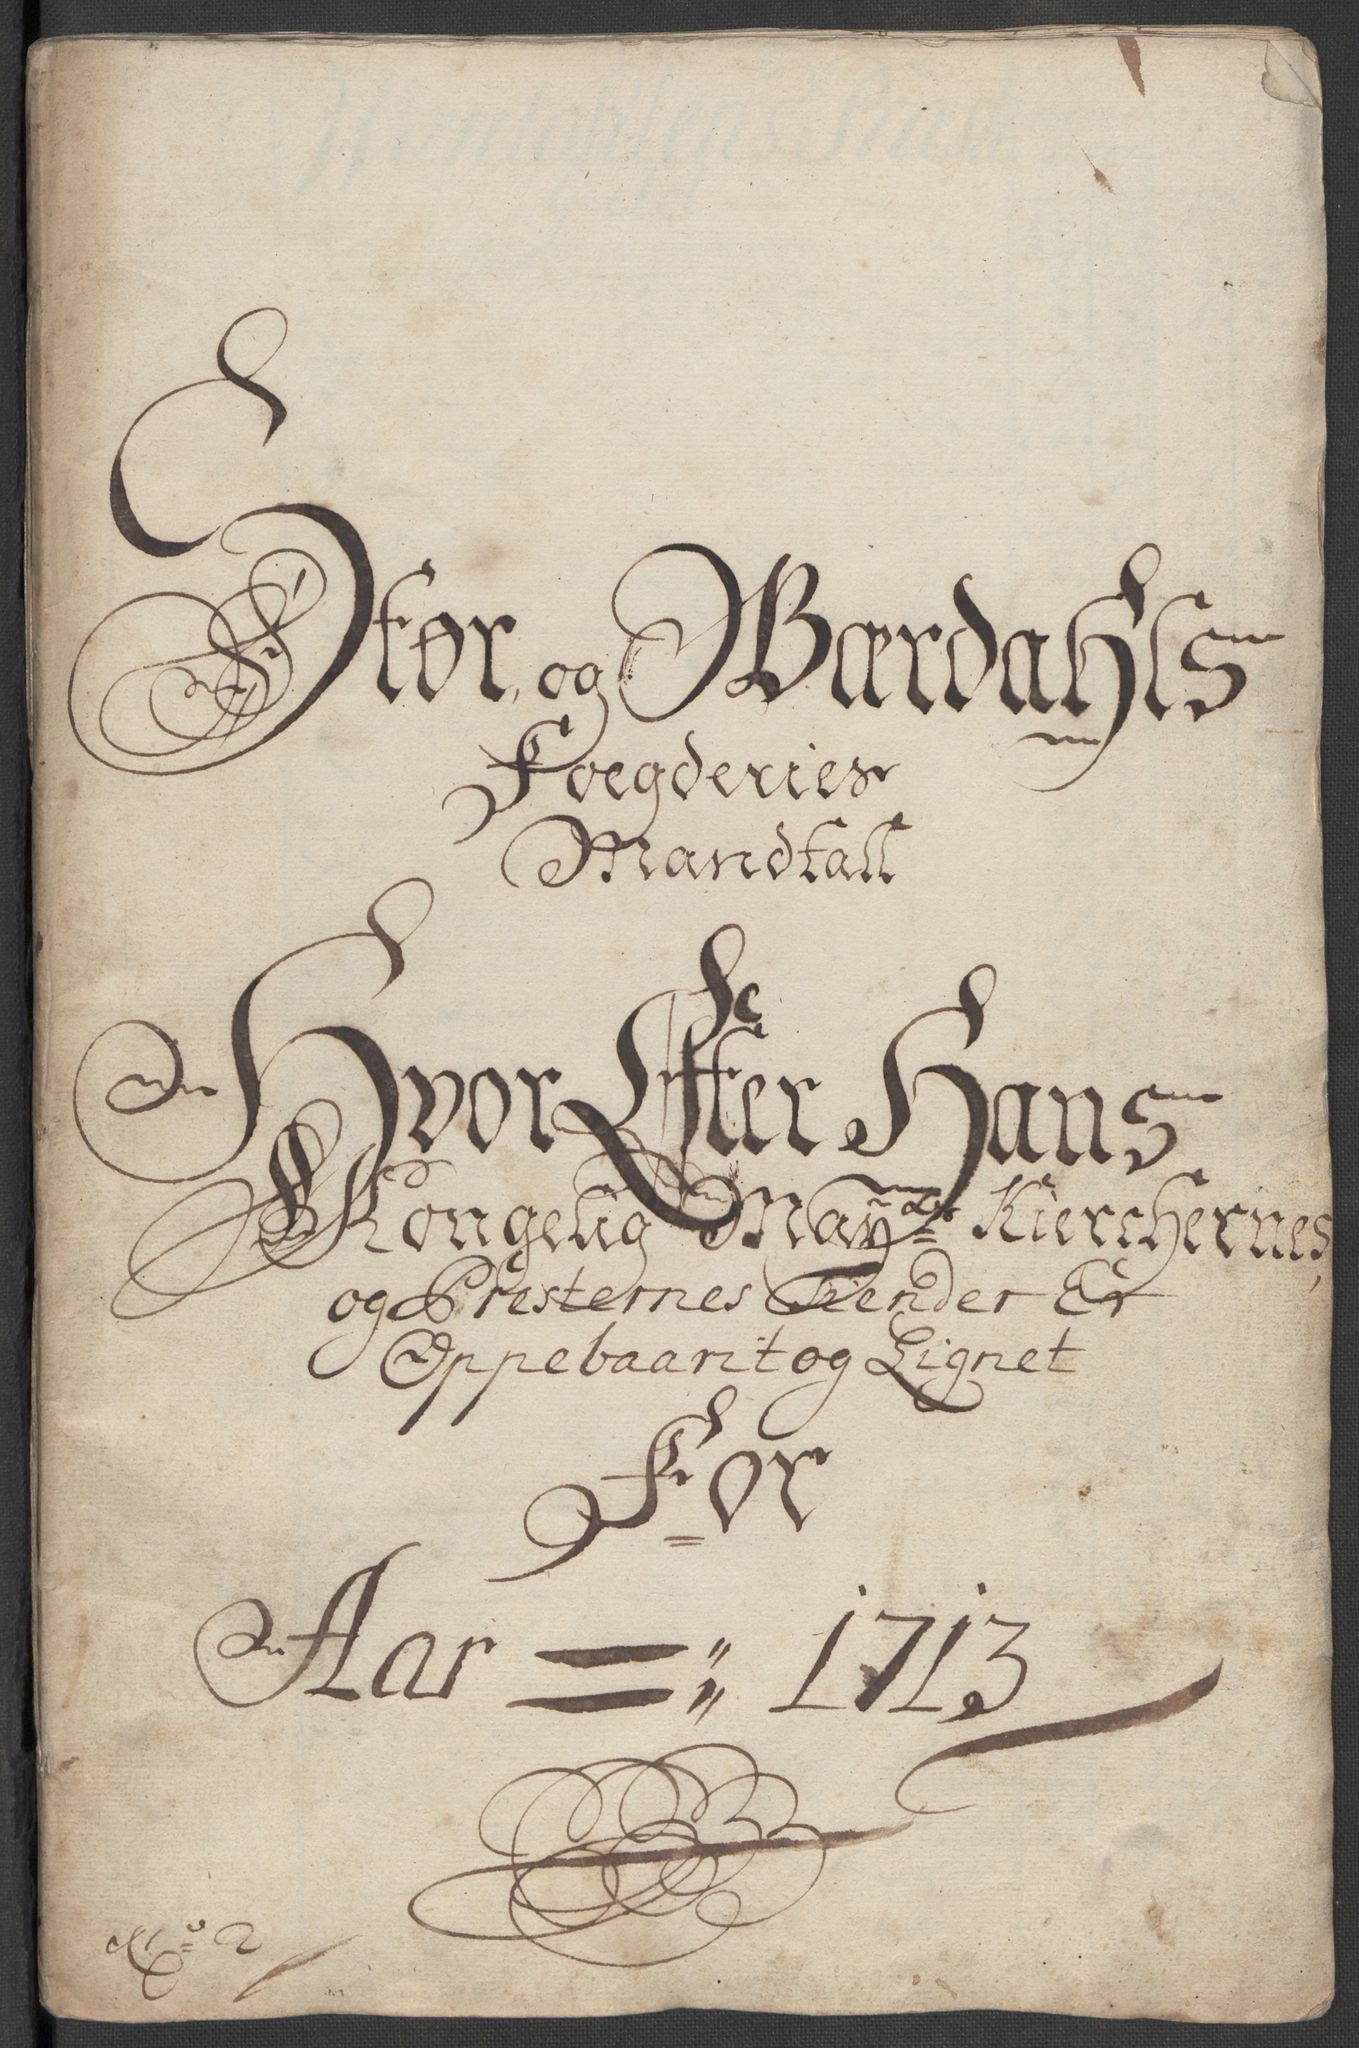 Stør og Wærdahls
Foegderies
Mandtall
Hvor Effter Hans
Kongelig Mayts Kierchernes,
og Presternes Tiender Er
Oppebaarit og Lignet
For
Aar =;; 1713
No 2